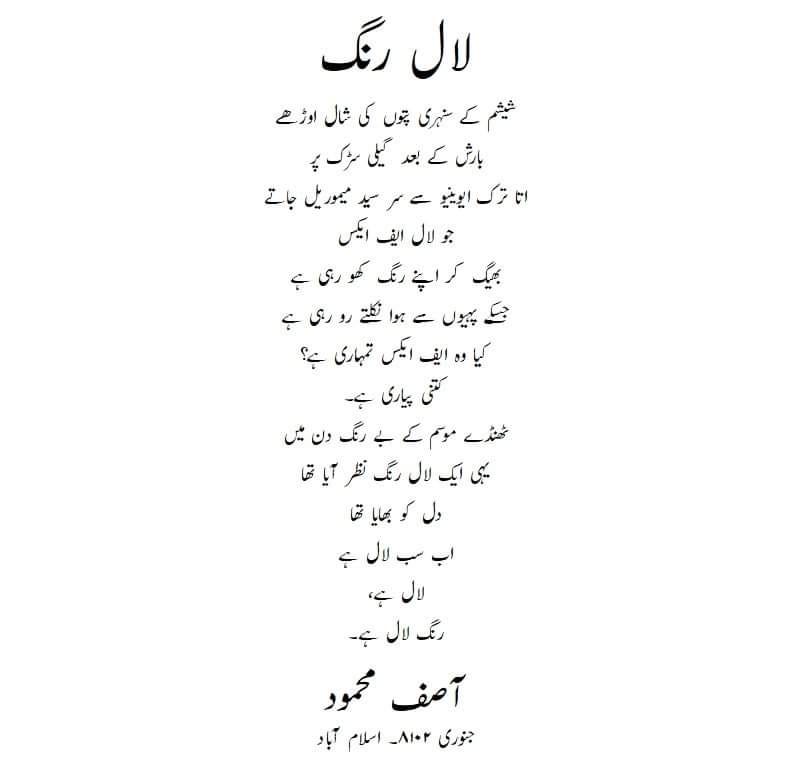 لال رنگ
شیشم کے سنہری پتوں کی شال اوڑھے
بارش کے بعد گیلی سڑک پر
اتا ترک ایوینیو سے سر سید میموریل جاتے
جو لال ایف ایکس
بھیگ کر اپنے رنگ کھو رہی ہے
جسکے پہیوں سے ہوا نکلتے رو رہی ہے
کیا وہ ایف ایکس تمہاری ہے؟
کتنی پیاری ہے۔
ٹھنڈے موسم کے بے رنگ دن میں
یہی ایک لال رنگ نظر آیا تھا
دل کو بھایا تھا
اب سب لال ہے
لال ہے،
رنگ لال ہے۔
آصف محمود
جنوری ۸۱۰۲۔ اسلام آباد